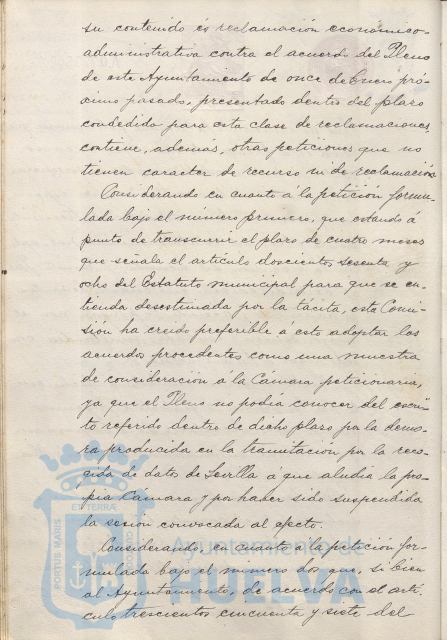 su contenido és reclamación económico-
administrativa contra el acuerdo del Pleno
de este Ayuntamiento de once de Enero pró-
ximo pasado, presentado dentro del plazo
condedido para esta clase de reclamaciones,
contiene, además, otras peticiones que no
tienen caracter de recurso ni de reclamación.
Considerando en cuanto á la petición formu-
lada bajo el número primero, que estando á
punto de transcurrir el plazo de cuatro meses
que señala el artículo doscientos sesenta y
ocho del Estatuto municipal para que se en-
tienda desestimada por la tácita, esta Comi-
sión ha creido preferible á esto adoptar los
acuerdos procedentes como una muestra
de consideración á la Cámara peticionaria,
ya que el Pleno no podia conocer del escri-
to referido dentro de dicho plazo por la demo-
ra producida en la tramitación por la reco-
gida de datos de Sevilla á que aludia la pro-
pia Cámara y por haber sido suspendida
la sesión convocada al efecto.
Considerando, en cuanto á la petición for-
mulada bajo el número dos que, si bien
al Ayuntamiento, de acuerdo con el artí-
culo trescientos cincuenta y siete del
PORTUS MARIS ET TERRÆ CUSTODIO
Ayuntamiento de
HUELVA